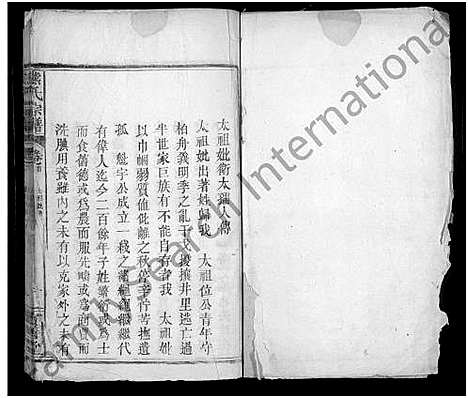 太祖妣衛太孺人傳
太祖妣出著姓歸我　太祖位公青年守
柏舟義明季之亂干戈擾攘井里逃亡過
半世家巨族有不能自存者我　太祖妣
以巾幗弱質值仳離之秋茹辛苦撫遺
孤　魁宇公成立一綫之緒繩繩繼繼代
有偉人迄今二百餘年子姓繁衍或爲士
而食舊德或爲農而服先疇或爲商而
洗腆用養雖內之未有以克家外之未有
熊氏宗譜
卷首
FamilySearch International